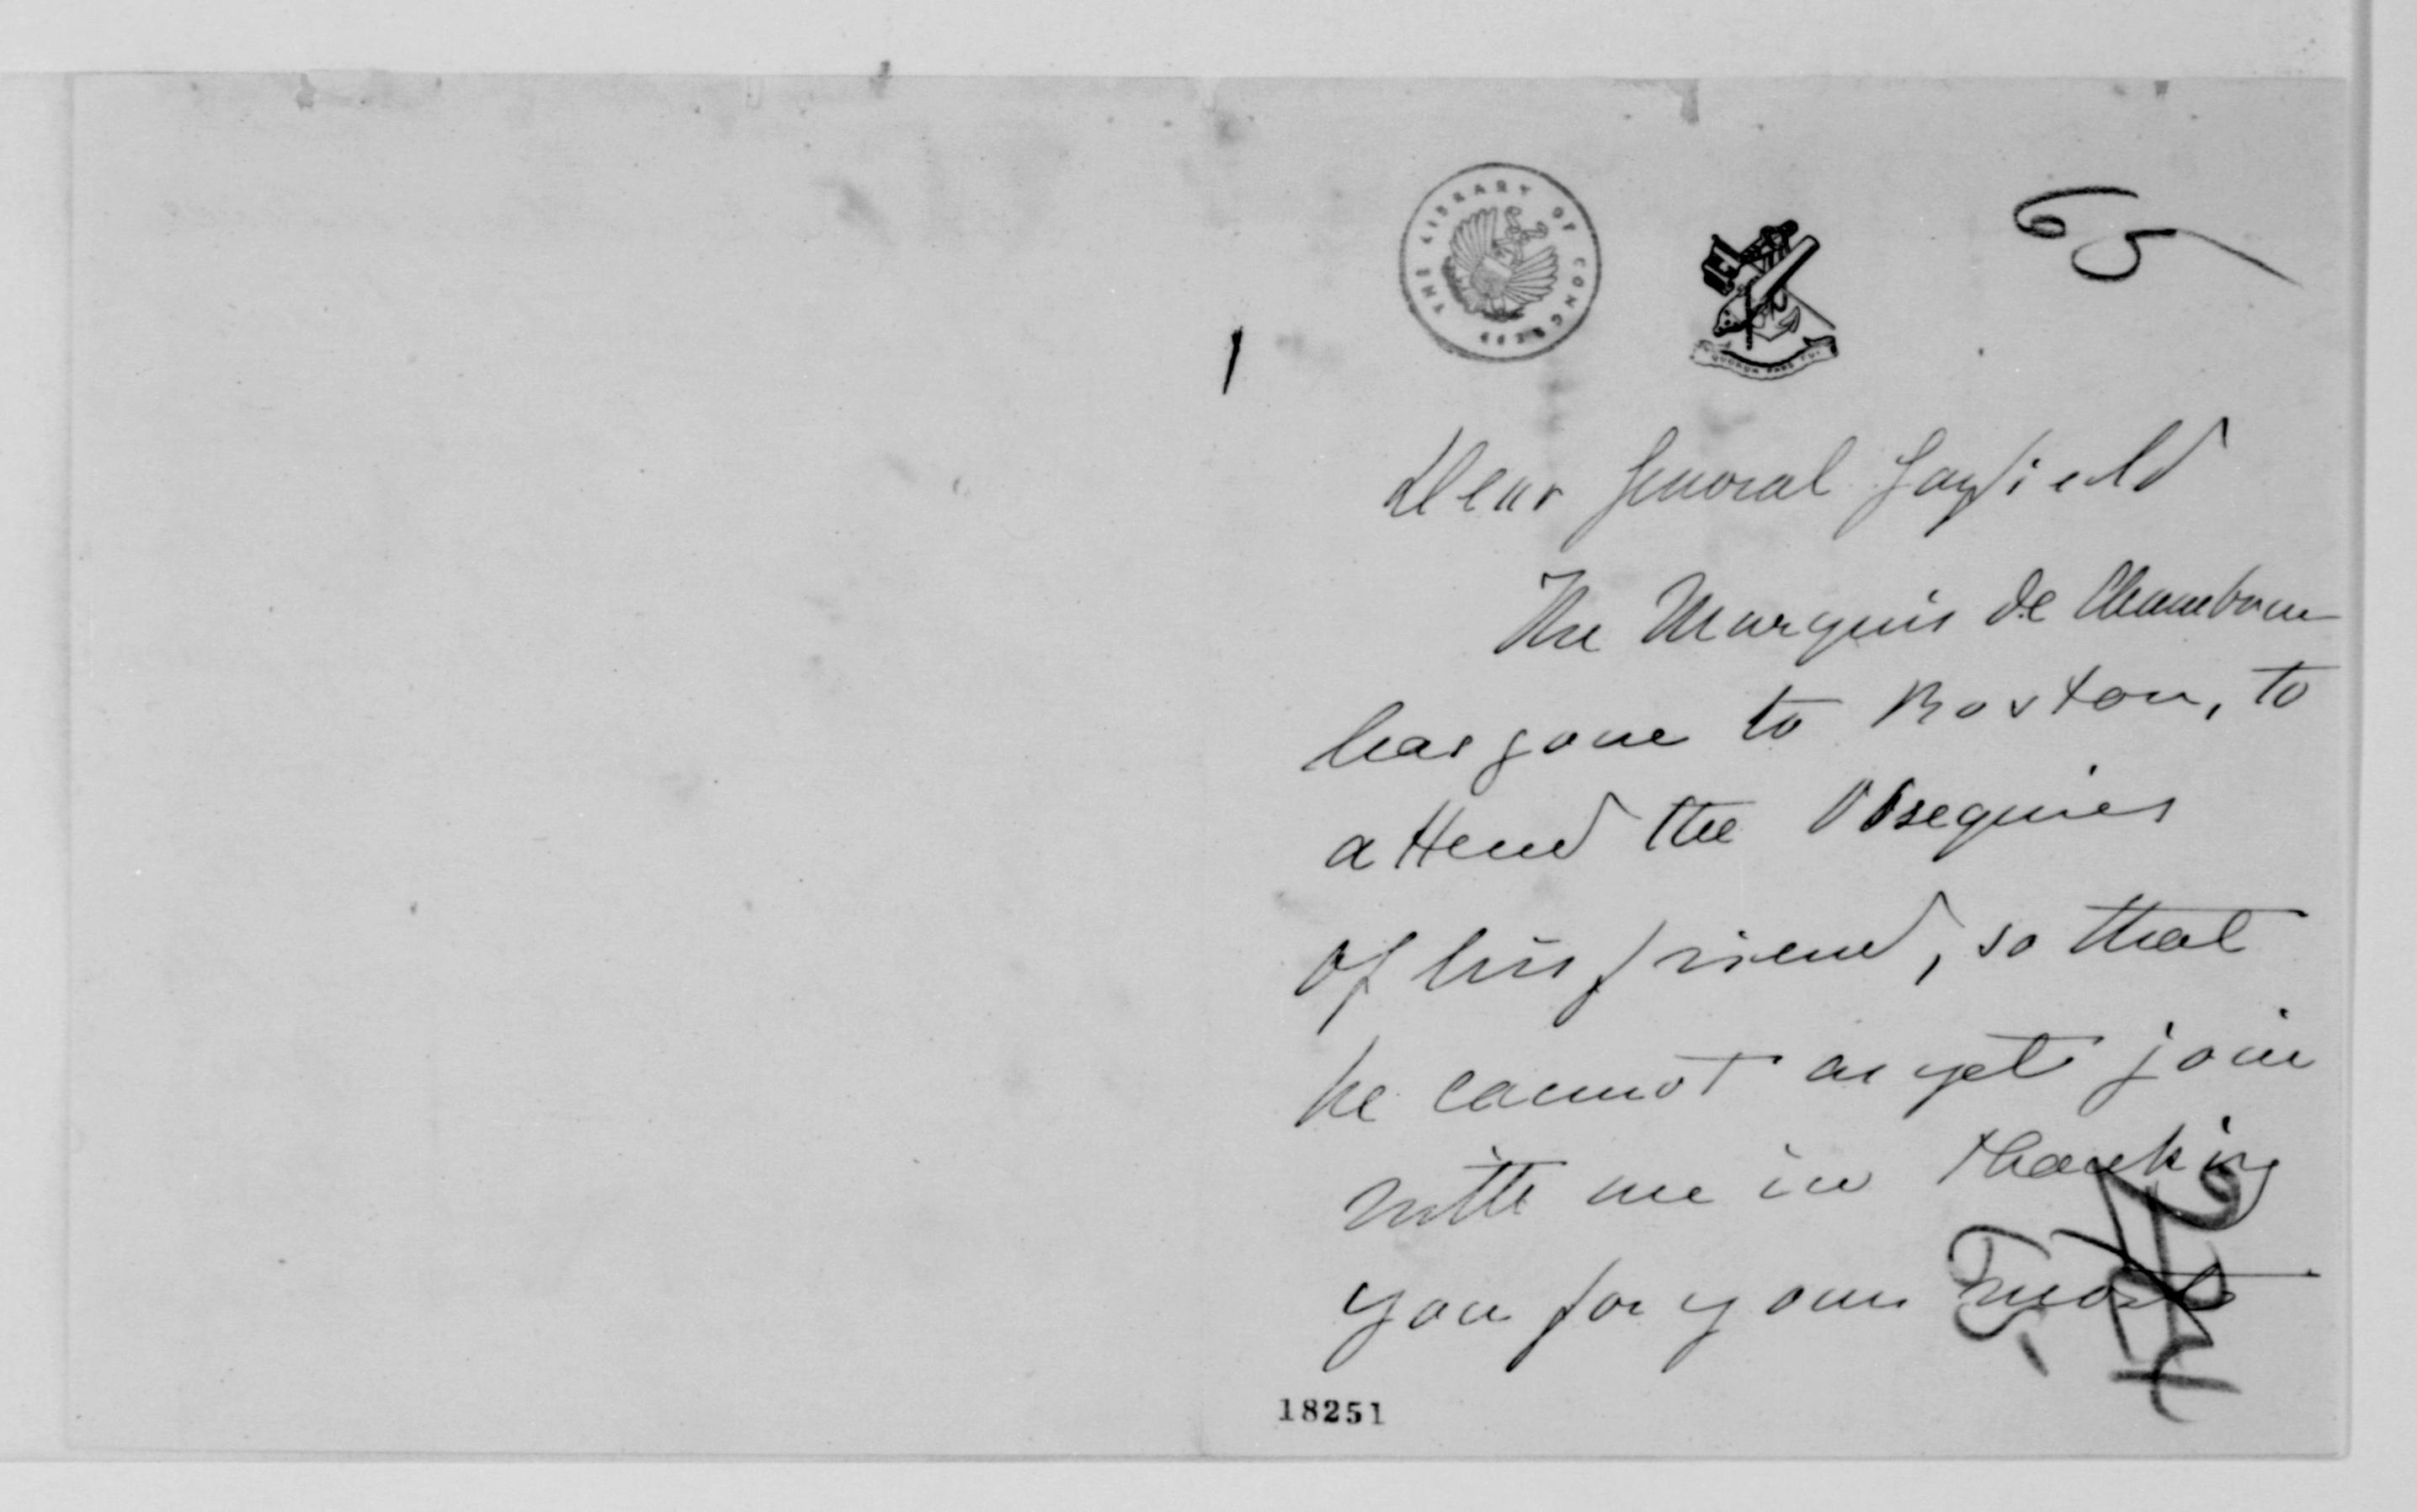 THE LIBRARY OF CONGRESS
65
QUORUM PARS FUI
Dear General Garfield
The Marquis de Chambrun
has gone to Boston, to
attend the Obsequies
of his friend, so that
he cannot as yet join
with me in thanking
you for your most
18251